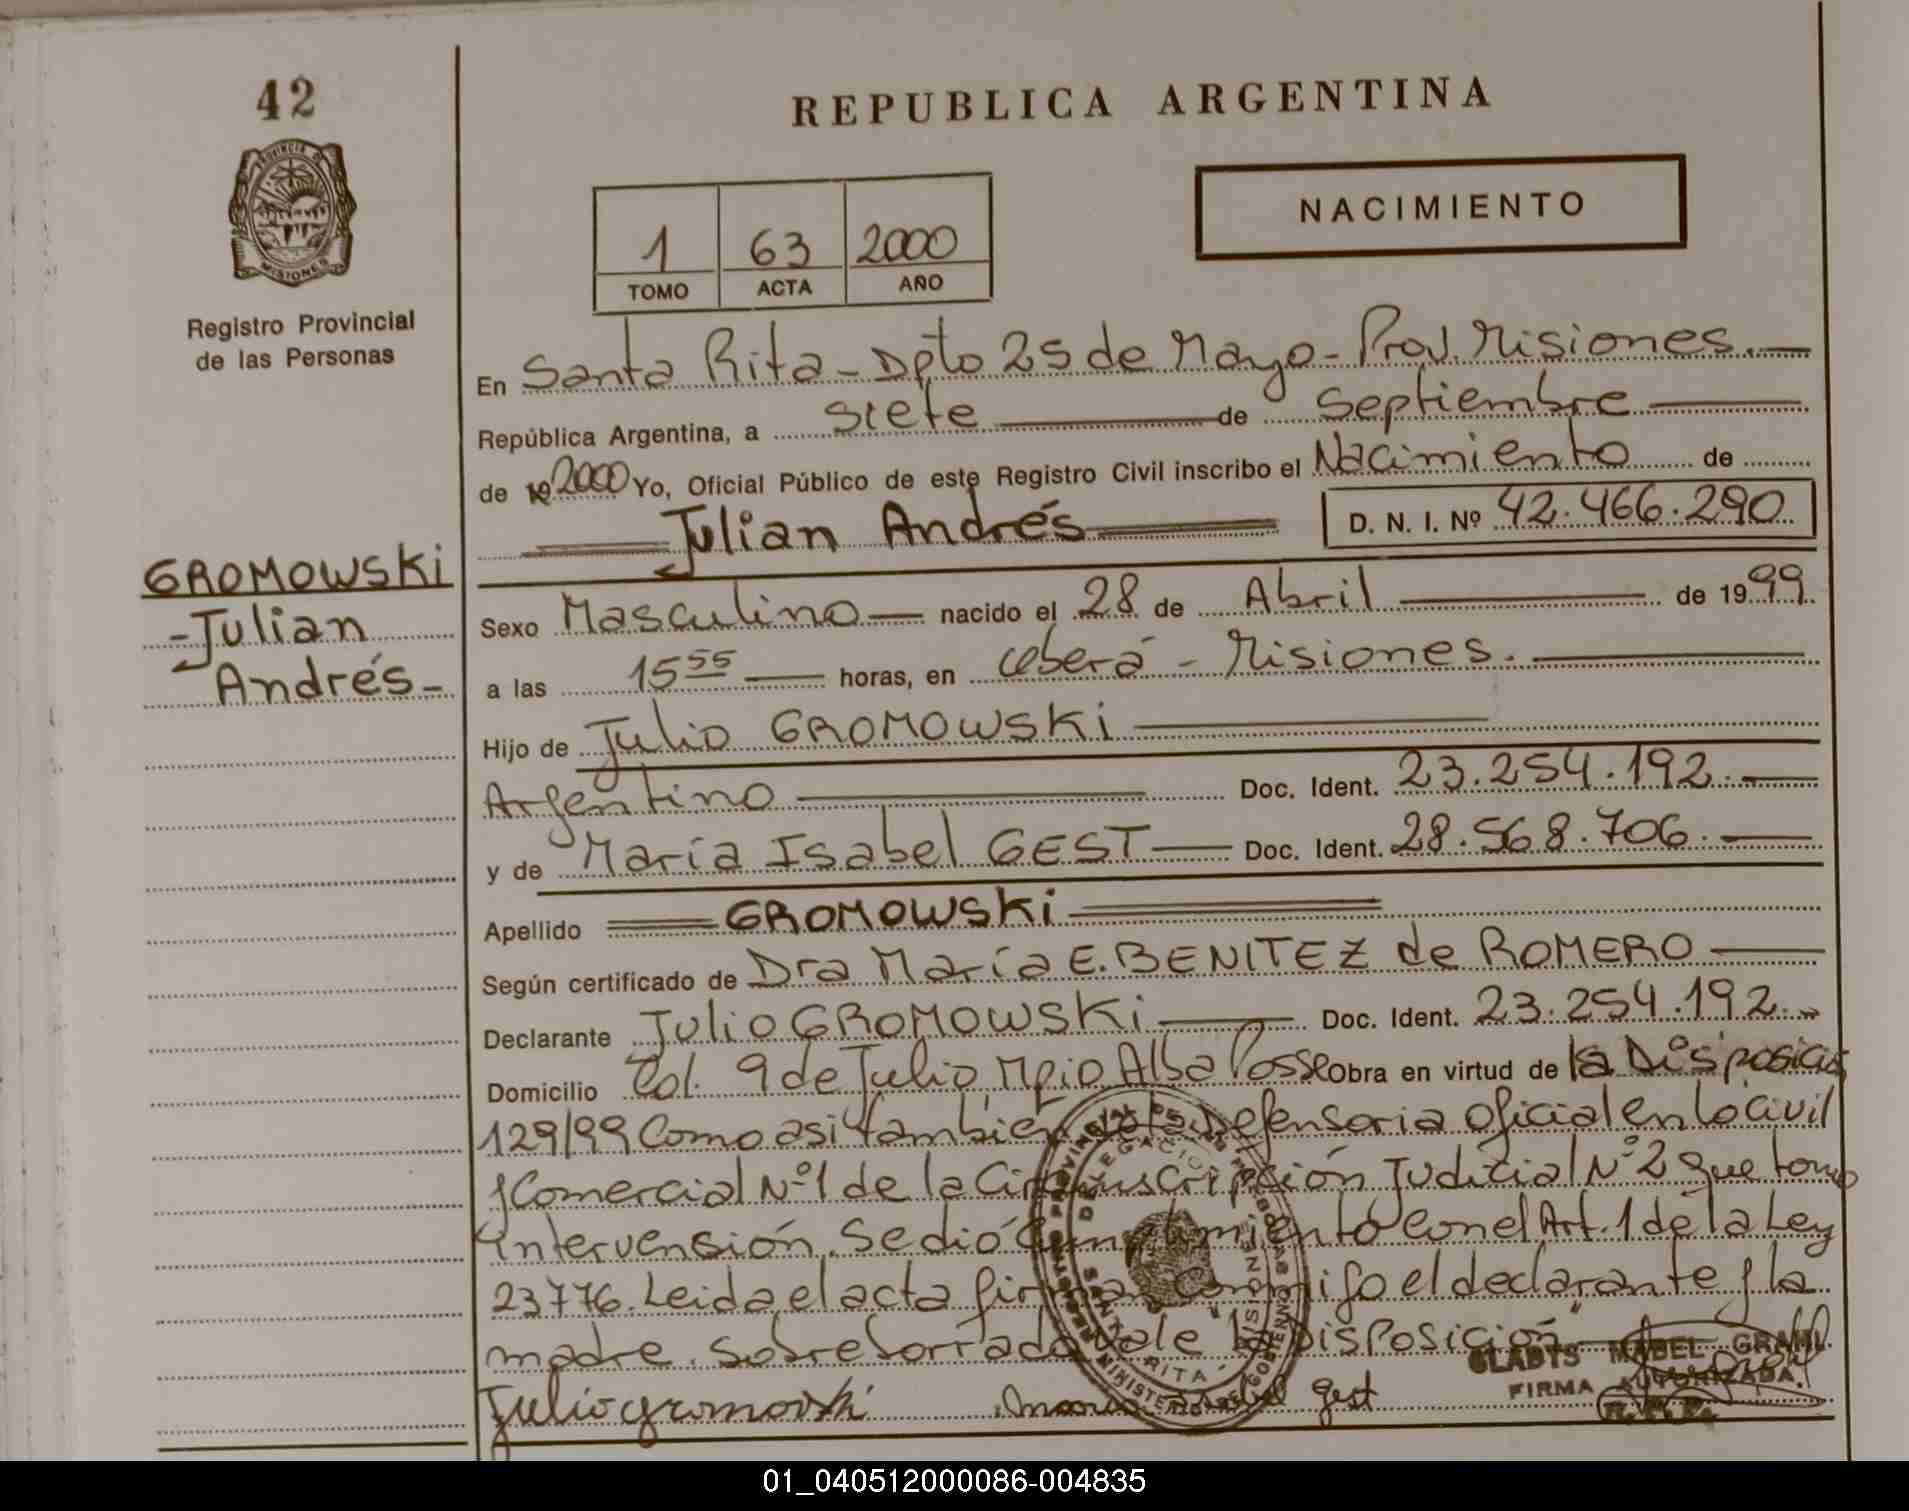 42
REPUBLICA ARGENTINA
PROVINCIA DE
MISIONES
Registro Provincial
de las Personas
1 63 2000
TOMO ACTA AÑO
NACIMIENTO
En Santa Rita - Dpto 25 de Mayo - Prov. Misiones.
República Argentina, a siete de septiembre
de 19 2000 Yo, Oficial Público de este Registro Civil inscribo el Nacimiento de
Julian Andrés D. N. I. Nº 42.466.290
GROMOWSKI
Julian
Andrés
Sexo Masculino nacido el 28 de Abril de 1999
a las 15 55 horas, en Oberá - Misiones.
Hijo de Julio GROMOWSKI
Argentino Doc. Ident. 23.254.192.
y de Maria Isabel GEST Doc. Ident. 28.568.706.
Apellido GROMOWSKI
Según certificado de Dra Maria E. BENITEZ de ROMERO
Declarante Julio GROMOWSKI Doc. Ident. 23.254.192.
Domicilio Col. 9 de Julio Mpio Alba Posse Obra en virtud de la Disposición
129/99 Como asi tambien de la Defensoria Oficial en lo Civil
y Comercial Nº1 de la Circunscripción Judicial Nº2 que tomo
Intervensión. Se dió Cumplimiento con el Art. 1 de la Ley
23776. Leida el acta firman conmigo el declarante y la
madre. Sobreborrado vale "la Disposición"
Julio gromovski maria isabel gest
GLADYS MABEL GRAHL
FIRMA AUTORIZADA
R.P.P.
01_040512000086-004835